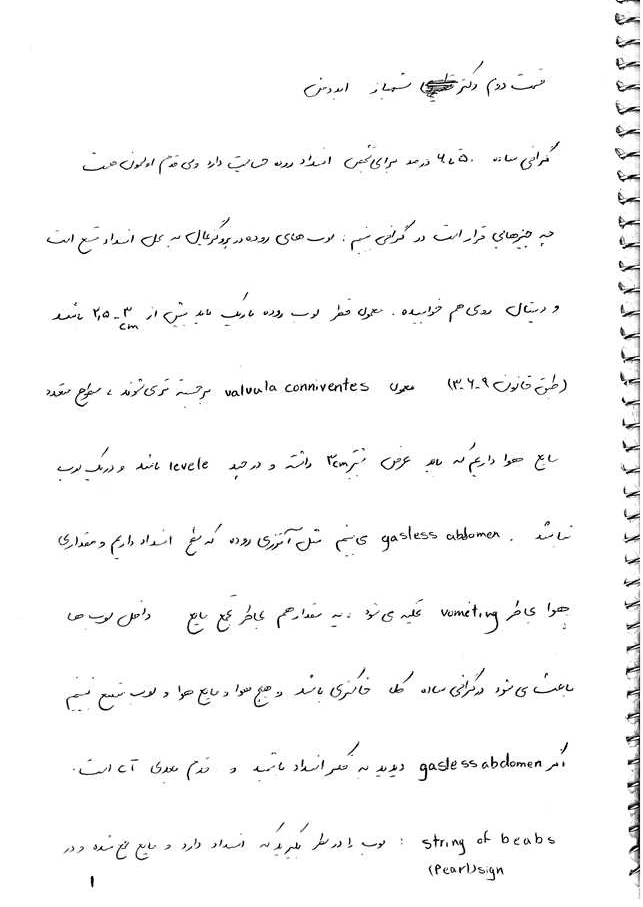 قسمت دوم دکتر شهباز ایدوش
گرافی ساده ۵۰ تا ۶۰ درصد برای تشخیص انسداد روده حساسیت دارد ولی قدم اولمون هست
چه چیزهایی قرار است در گرافی ببینیم : لوب های روده در پروگزیمال به محل انسداد متسع است
و دیستال روی هم خوابیده . معمولا قطر لوب روده باریک باید بیش از ۳ - ۲,۵ cm باشد
(طبق قانون ۹-۶-۳) معمولا valvula conniventes برجسته تر می شوند ، سطوح متعدد
مایع هوا داریم که باید عرض بیشتر ۳cm داشته و در چند levele باشد و در یک لوب
نباشد . gasless abdomen می بینیم مثل آتروزی روده که سطح انسداد داریم و مقداری
هوا بخاطر vomiting تخلیه می شود ، یه مقدار هم بخاطر تجمع مایع داخل لوب ها
باعث می شود در گرافی ساده کلا خاکستری باشد و هیچ هوا و مایع هوا و لوب متسع نبینیم
اگر gasless abdomen دیدید به فکر انسداد باشید و قدم بعدی CT است .
string of beabs : لوب را در نظر بگیرید که انسداد دارد و مایع جمع شده و در
(Pearl) sign
۱